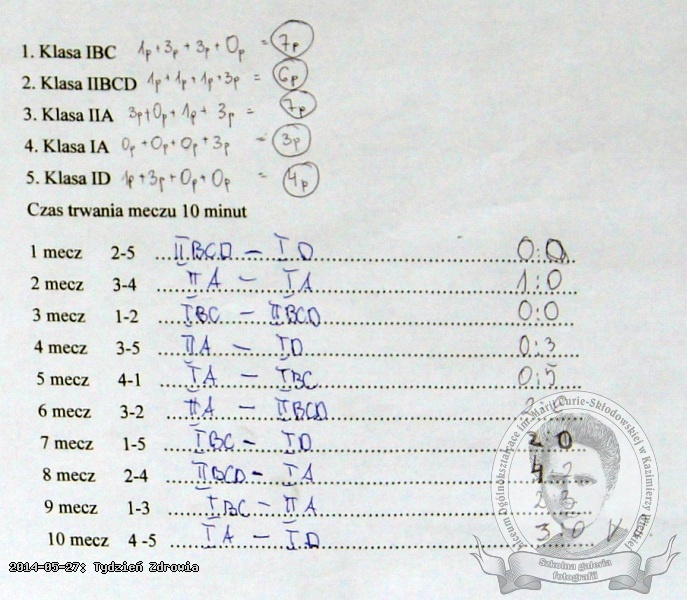 1. Klasa IBC 1p + 3p + 3p + 0p = 7p
2. Klasa IIBCD 1p + 1p + 1p + 3p = 6p
3. Klasa IIA 3p + 0p + 1p + 3p = 7p
4. Klasa IA 0p + 0p + 0p + 3p = 3p
5. Klasa ID 1p + 3p + 0p + 0p = 4p
Czas trwania meczu 10 minut
1 mecz 2-5 IIBCD - ID 0:0
2 mecz 3-4 IIA - IA 1:0
3 mecz 1-2 IBC - IIBCD 0:0
4 mecz 3-5 IIA - ID 0:3
5 mecz 4-1 IA - IBC 0:5
6 mecz 3-2 IIA - IIBCD
7 mecz 1-5 IBC - ID 2 0
8 mecz 2-4 IIBCD - IA 4 2
9 mecz 1-3 IBC - IIA 2 3
10 mecz 4 -5 IA - ID 3:0 V
Liceum Ogólnokształcące im. Marii Curie-Skłodowskiej w Kazimierzy Wielkiej
Szkolna galeria
fotografii
2014-05-27: Tydzień Zdrowia